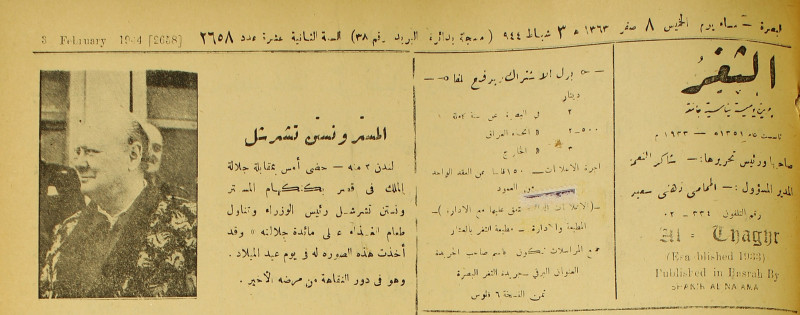 البصرة — مساء يوم الخميس ٨ صفر ١٣٦٣ ه ٣ شباط ٩٤٤ ( مسجلة بدائرة البريد رقم ٣٨) السنة الثانية عشرة عدد ٢٦٥٨
3 February 1944 [2658]
الثغر
جريدة يومية سياسية جامعة
تأسست عام ١٣٥١ ه — ١٩٣٣ م
صاحبها ورئيس تحريرها:— شاكر النعمة
المدير المسؤول:— المحامي زهني سعيد
رقم التلفون
Al - Thaghr
(Established 1933)
Published in Basrah By
SHAKIR AL NAAMA
بدل الاشتراك: يدفع سلفا
دينار
٢ في البصرة عن سنة كاملة
٢-٥٠٠ « انحاء العراق
٣ « الخارج
اجرة الاعلانات — ١٥٠ فلسا عن العقد الواحد
من العمود
—(الاعلانات يتفق عليها مع الادارة)—
المطبعة والادارة — مطبعة الثغر بالعشار
جميع المراسلات تكون باسم صاحب الجريدة
العنوان البرقي — جريدة الثغر البصرة
ثمن النسخة ٦ فلوس
المستر ونستن تشرشل
لندن ٢ منه — حضى أمس بمقابلة جلالة
الملك في قصر بكنكهام المستر
ونستن تشرشل رئيس الوزراء وتناول
طعام الغداء على مائدة جلالته « وقد
أخذت هذه الصوره له في يوم عيد الميلاد .
وهو في دور النقاهة من مرضه الأخير .